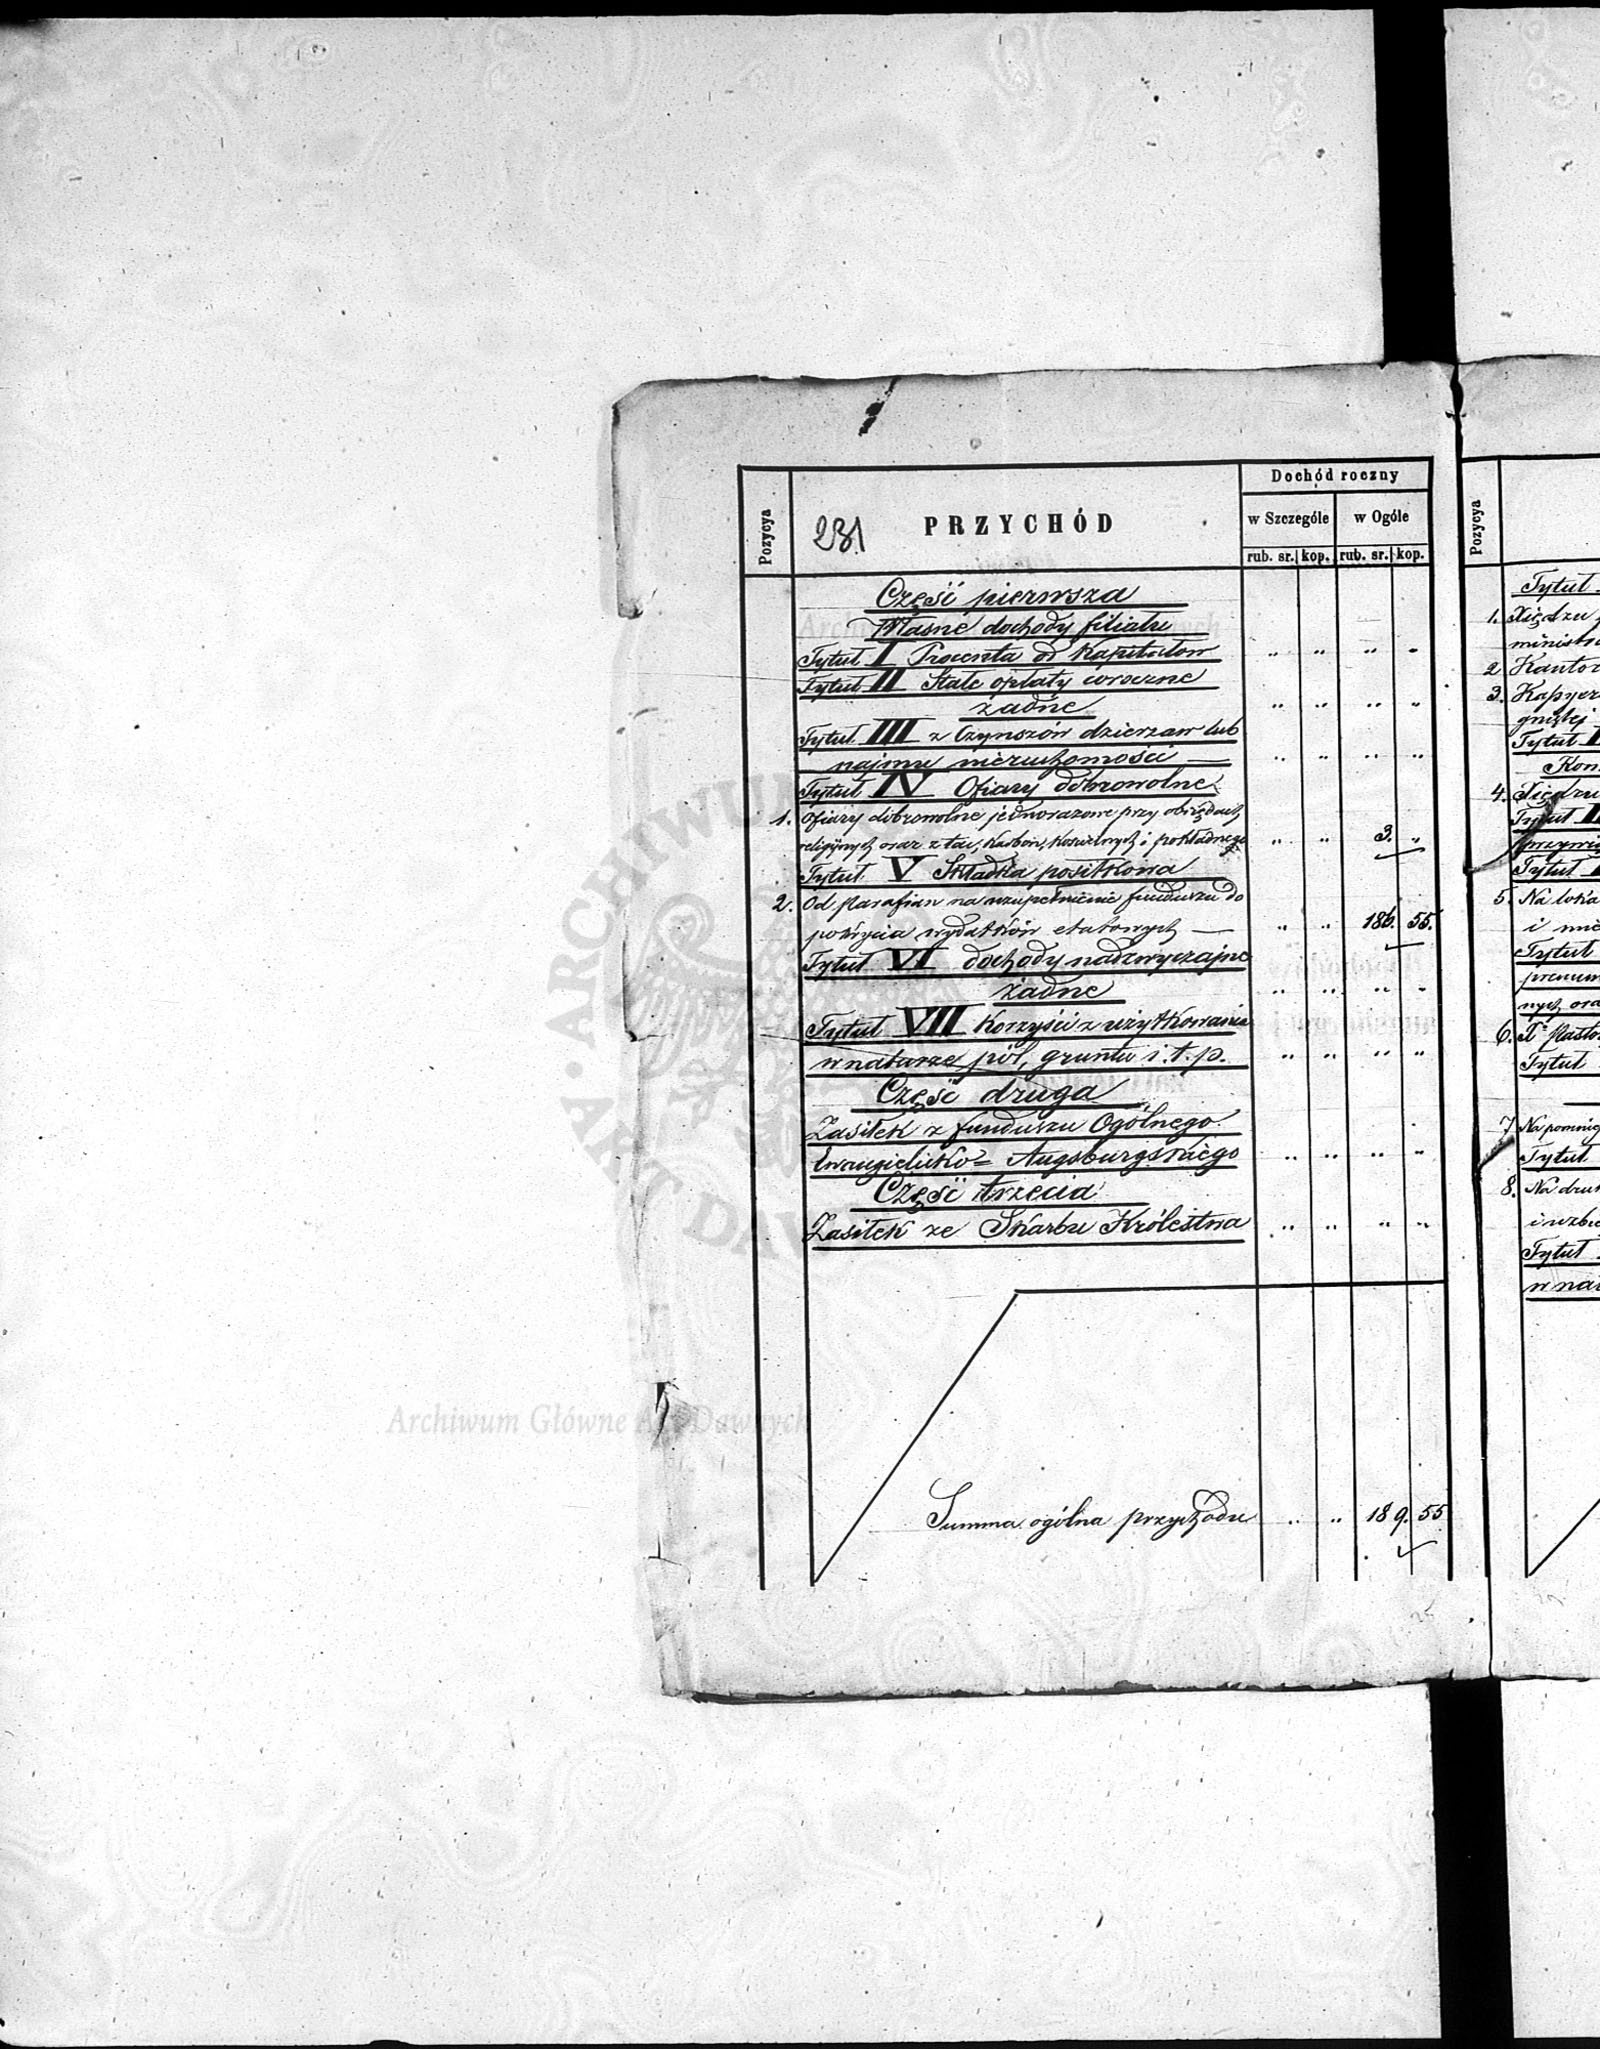 Pozycya
231
PRZYCHÓD
Dochód roczny
w Szczególe
w Ogóle
rub. sr. kop. rub. sr. kop.
Część pierwsza
Własne dochody filiału
Tytuł I Procenta od Kapitałow " " " "
Tytuł II Stałe opłaty coroczne
żadne " " " "
Tytuł III z Czynszów dzierzaw lub
najmu nieruchomości — " " " "
Tytuł IV Ofiary dobrowolne
1. Ofiary dobrowolne jednorazowe przy obrzędach
religijnych oraz z tac, Karbon, Kościelnych i pokładnego " " 3. "
Tytuł V Składka positkowa
2. Od Parafian na uzupełnienie funduszu do
pokrycia wydatków etatowych — " " 186. 55.
Tytuł VI dochody nadzwyczajne
żadne " " " "
Tytuł VII Korzyści z użytkowania
w naturze pól, gruntu i.t.p. " " " "
Część druga
Zasiłek z funduszu Ogólnego
Ewangielicko= Augsburgskiego " " " "
Część trzecia
Zasiłek ze Skarbu Królestwa " " " "
Summa ogólna przychodu " " 189. 55
Pozycya
Tytuł
1. Xiędzu
2 Kantor
3.
Tytuł
4. Xiędzu
Tytuł
Tytuł
5. Na
i
Tytuł
nych
6.
Tytuł
7
Tytuł
8. Na
i
Tytuł
w
Archiwum Główne Akt Dawnych
ARCHIWUM
AKT DAW